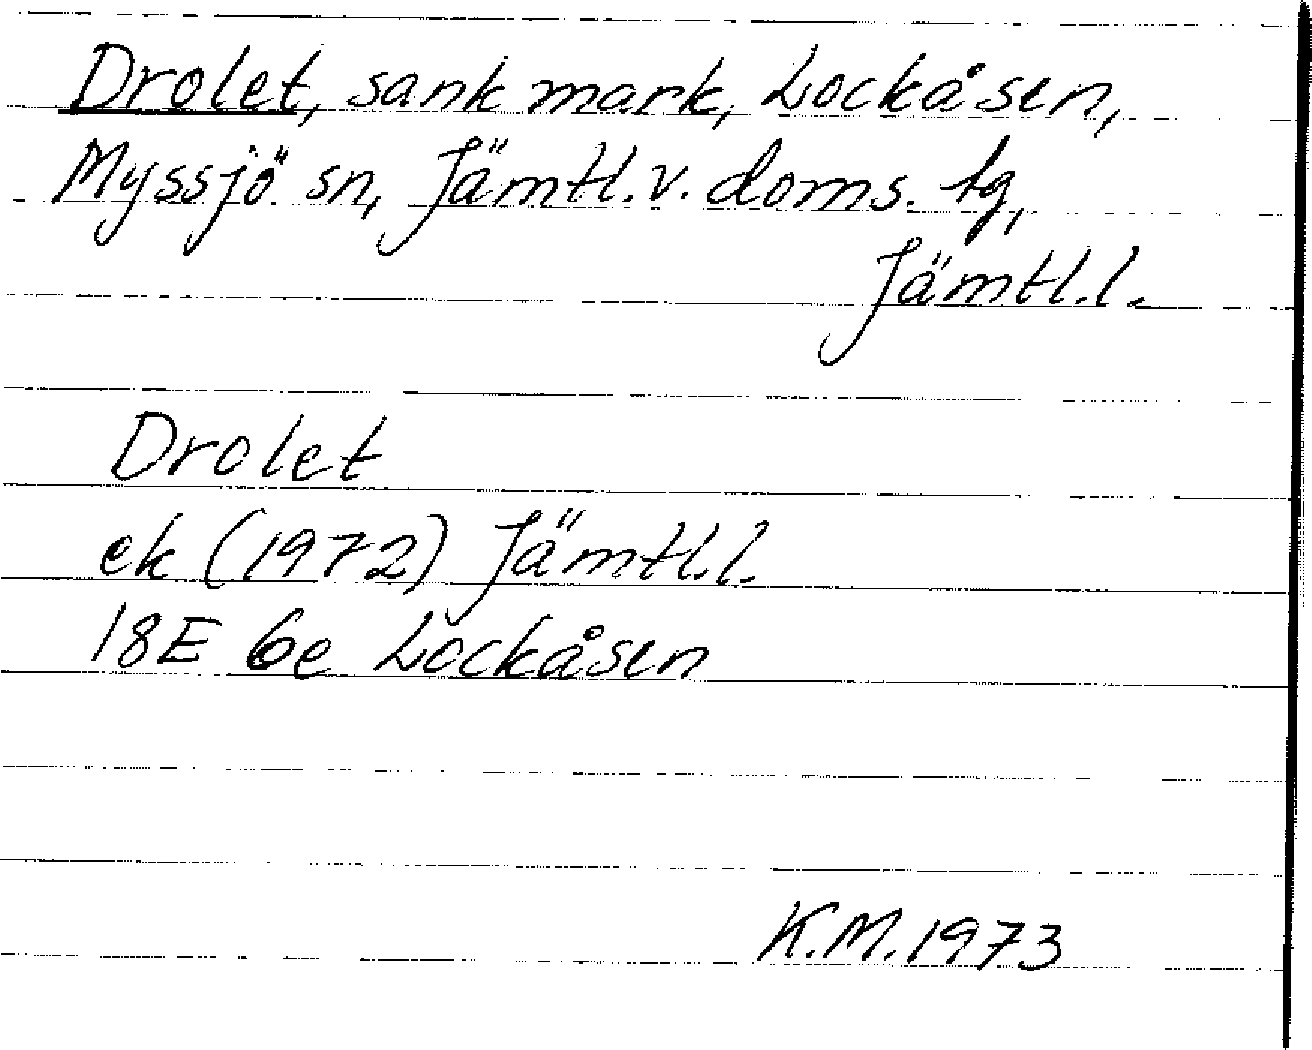 Drolet, sank mark, Lockåsen,
Myssjö sn, Jämtl. v. doms. tg,
Jämtl. l.
Drolet
ek (1972) Jämtl. l.
18E 6e Lockåsen
K.M. 1973